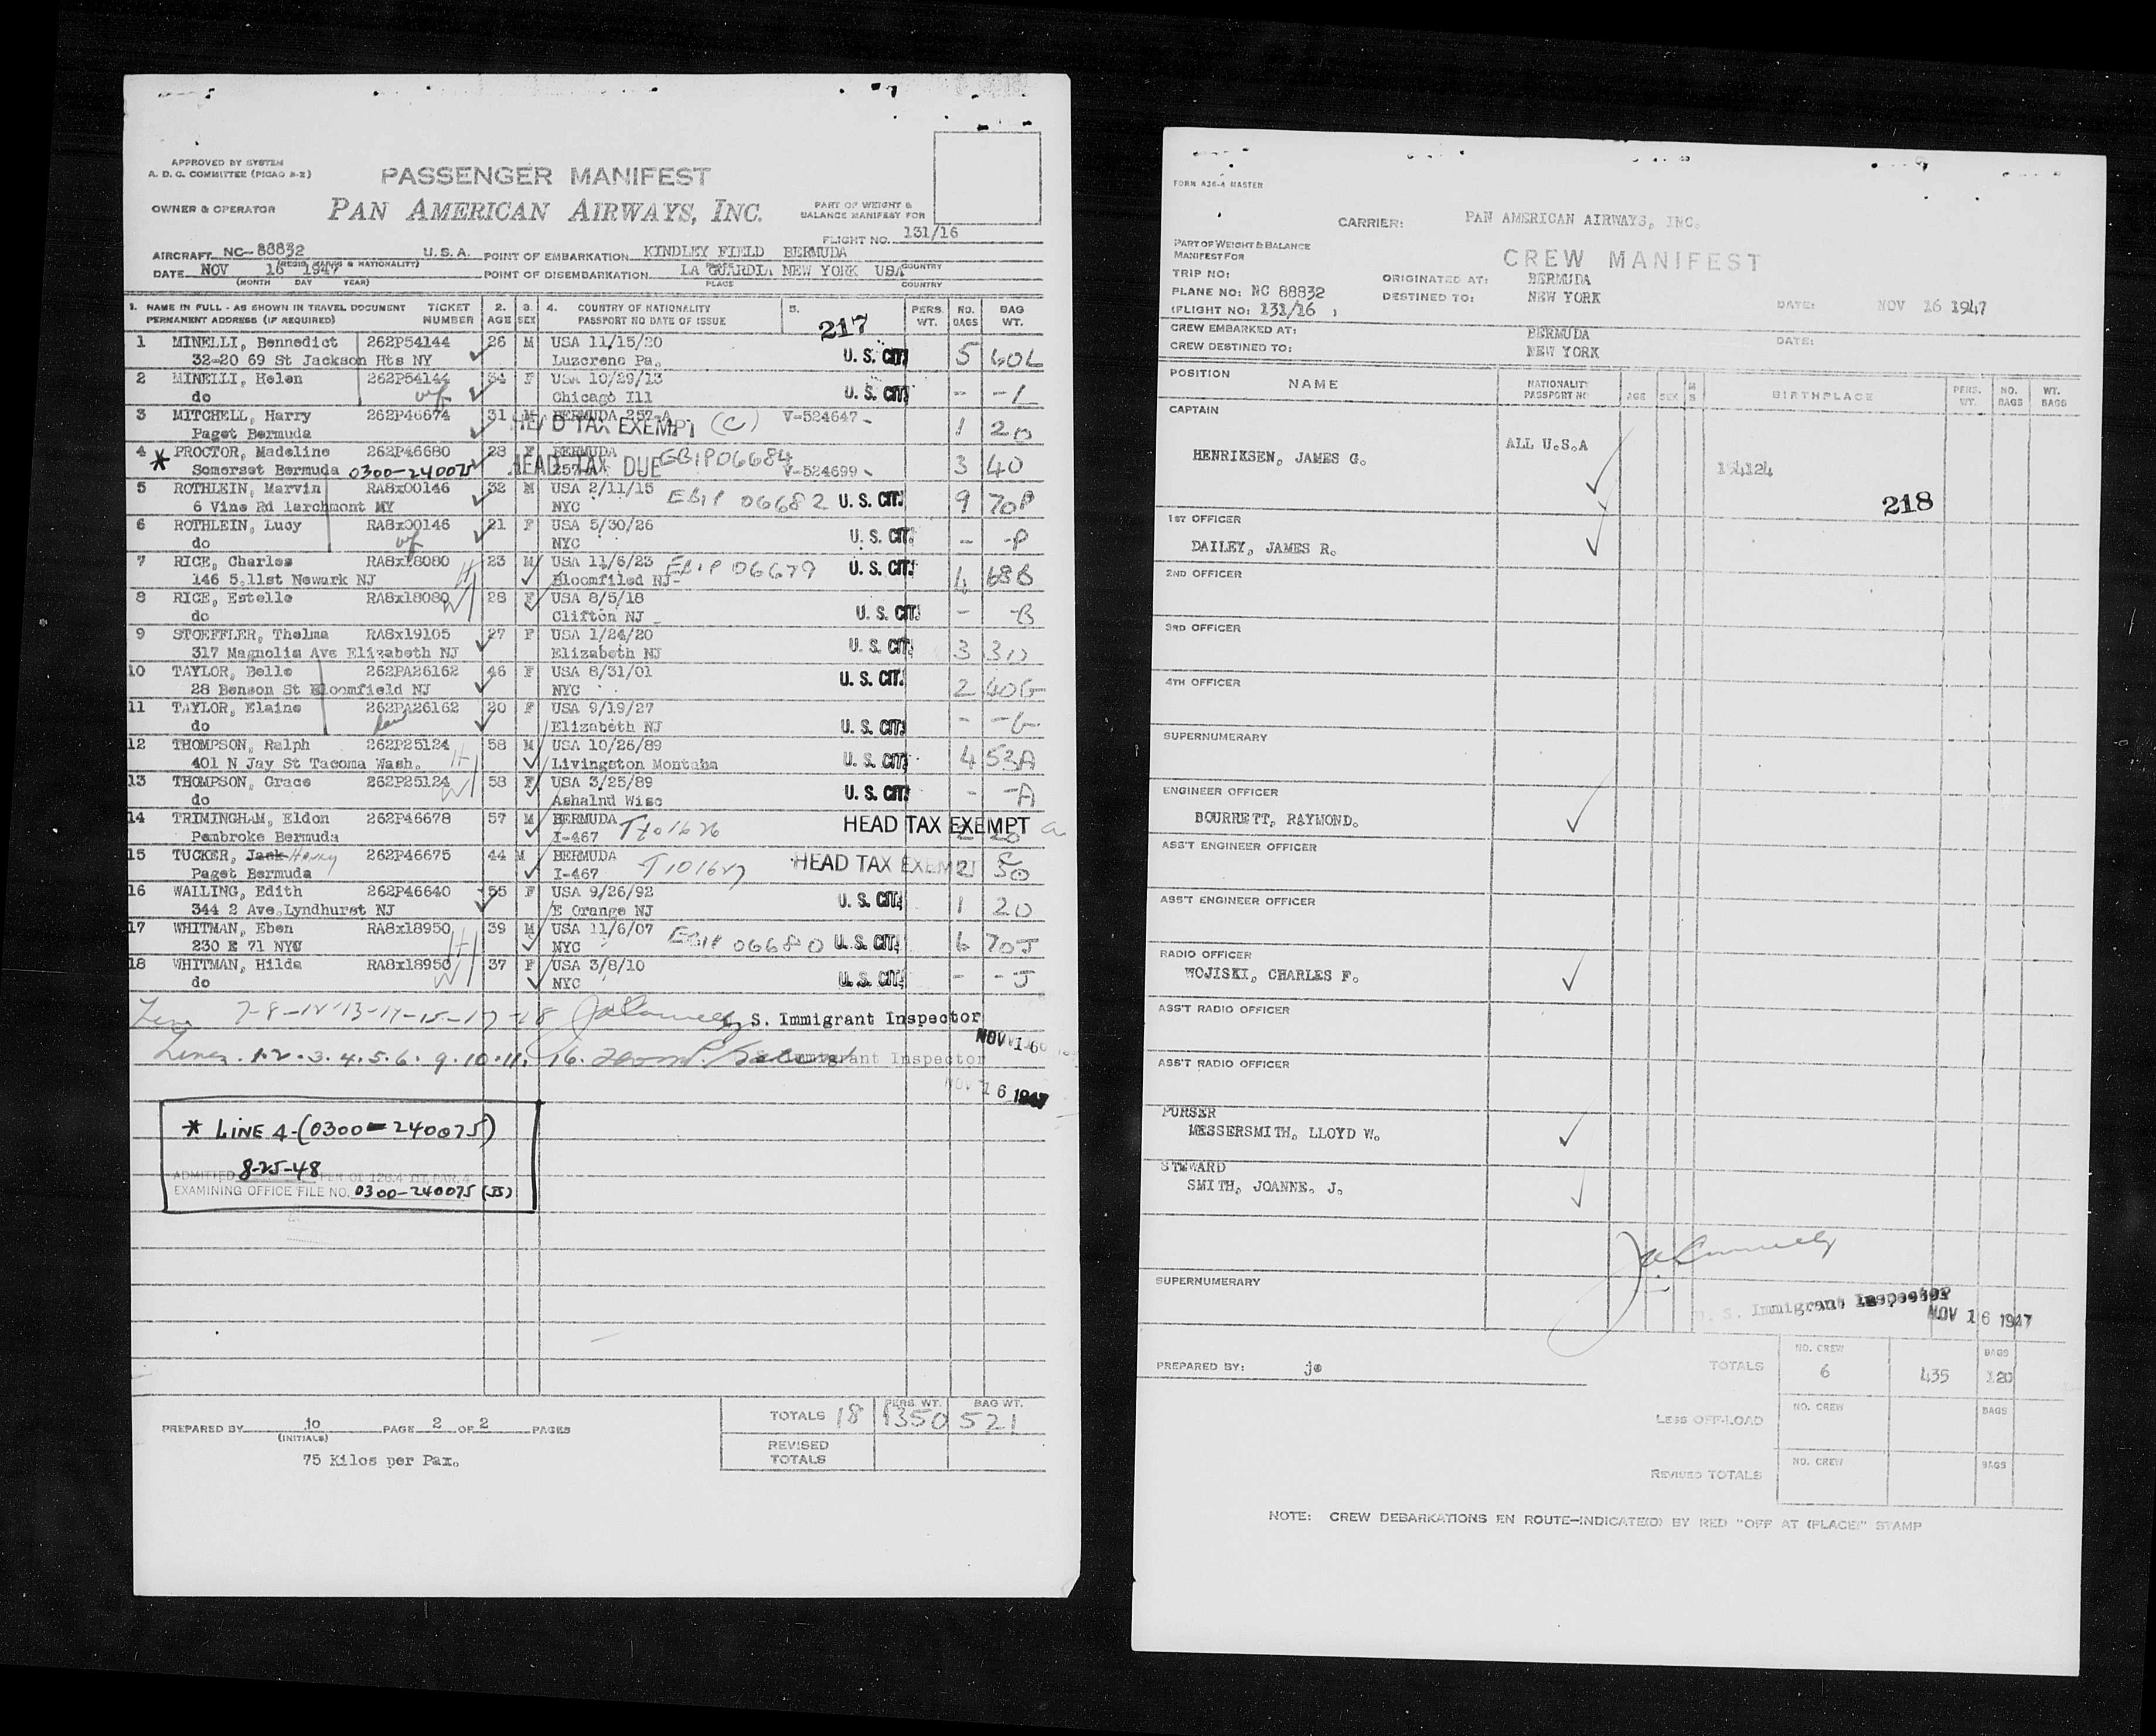 APPROVED BY SYSTEM
A. D. C. COMMITTEE (PICAO B-2)
PASSENGER MANIFEST
OWNER & OPERATOR
PAN AMERICAN AIRWAYS, INC.
PART OF WEIGHT &
BALANCE MANIFEST FOR
FLIGHT NO. 131/16
AIRCRAFT NC-88832 U.S.A. POINT OF EMBARKATION KINDLEY FIELD BERMUDA
DATE NOV 16 1947 POINT OF DISEMBARKATION LA GUARDIA NEW YORK USA COUNTRY
(MONTH DAY YEAR) PLACE COUNTRY
1. NAME IN FULL - AS SHOWN IN TRAVEL DOCUMENT TICKET 2. 3. 4. COUNTRY OF NATIONALITY 5. PERS. NO. BAG
PERMANENT ADDRESS (IF REQUIRED) NUMBER AGE SEX PASSPORT NO DATE OF ISSUE 217 WT. BAGS WT.
1 MINELLI, Bennedict 262P54144 26 M USA 11/15/20
32-20 69 St Jackson Hts NY Luzcrene Pa. U. S. CIT. 5 60L
2 MINELLI, Helen 262P54144 34 F USA 10/29/13
do wf Chicago Ill U. S. CIT. - -L
3 MITCHELL, Harry 262P46674 31 M BERMUDA 257-A V-524647
Paget Bermuda HEAD TAX EXEMPT (C) 1 20
4 PROCTOR, Madeline 262P46680 28 F BERMUDA EBIP06684
* Somerset Bermuda 0300-240075 HEAD TAX DUE V-524699 3 40
5 ROTHLEIN, Marvin RA8x00146 32 M USA 2/11/15
6 Vine Rd larchmont NY NYC EBIP 06682 U. S. CIT. 9 70P
6 ROTHLEIN, Lucy RA8x00146 21 F USA 5/30/26
do wf NYC U. S. CIT. - -P
7 RICE, Charles RA8x18080 23 M USA 11/6/23 EBIP 06679 U. S. CIT.
146 S.11st Newark NJ H Bloomfiled NJ 4 68B
8 RICE, Estelle RA8x18080 28 F USA 8/5/18
do W Clifton NJ U. S. CIT. - -B
9 STOEFFLER, Thelma RA8x19105 27 F USA 1/24/20
317 Magnolia Ave Elizabeth NJ Elizabeth NJ U. S. CIT. 3 30
10 TAYLOR, Belle 262PA26162 46 F USA 8/31/01
28 Benson St Bloomfield NJ NYC U. S. CIT. 2 40G
11 TAYLOR, Elaine 262PA26162 20 F USA 9/19/27
do Elizabeth NJ U. S. CIT. - -G
12 THOMPSON, Ralph 262P25124 58 M USA 10/26/89
401 N Jay St Tacoma Wash. H Livingston Montaha U. S. CIT. 4 53A
13 THOMPSON, Grace 262P25124 58 F USA 3/25/89
do W Ashalnd Wisc U. S. CIT. - -A
14 TRIMINGHAM, Eldon 262P46678 57 M BERMUDA
Pembroke Bermuda I-467 HEAD TAX EXEMPT 20
15 TUCKER, Jack Henry 262P46675 44 M BERMUDA
Paget Bermuda I-467 HEAD TAX EXEMPT 2 50
16 WAILING, Edith 262P46640 55 F USA 9/26/92
344 2 Ave.Lyndhurst NJ E Orange NJ U. S. CIT. 1 20
17 WHITMAN, Eben RA8x18950 39 M USA 11/6/07
230 E 71 NYC H NYC EBIP 06680 U. S. CIT. 6 70J
18 WHITMAN, Hilda RA8x18950 37 F USA 3/8/10
do W NYC U. S. CIT. - -J
7-8-12-13-14-15-17-18 S. Immigrant Inspector
NOV 16
Lines. 1.2.3.4.5.6. 9.10.11. 16. Immigrant Inspector
NOV 16 1947
* LINE 4-(0300-240075)
ADMITTED 8-25-48 PER OI 126.4 III, PAR. 4
EXAMINING OFFICE FILE NO. 0300-240075 (JS)
PREPARED BY jo PAGE 2 OF 2 PAGES
(INITIALS)
75 Kilos per Pax.
PERS. WT. BAG WT.
TOTALS 18 1350 521
REVISED
TOTALS
FORM A36-4 MASTER
CARRIER: PAN AMERICAN AIRWAYS, INC.
PART OF WEIGHT & BALANCE
MANIFEST FOR
CREW MANIFEST
TRIP NO: ORIGINATED AT: BERMUDA
PLANE NO: NC 88832 DESTINED TO: NEW YORK DATE: NOV 16 1947
(FLIGHT NO: 131/16 )
CREW EMBARKED AT: BERMUDA DATE:
CREW DESTINED TO: NEW YORK
POSITION NAME NATIONALITY PASSPORT NO AGE SEX M S BIRTHPLACE PERS. WT. NO. BAGS WT. BAGS
CAPTAIN
ALL U.S.A
HENRIKSEN, JAMES G.
218
1ST OFFICER
DAILEY, JAMES R.
2ND OFFICER
3RD OFFICER
4TH OFFICER
SUPERNUMERARY
ENGINEER OFFICER
BOURRETT, RAYMOND.
ASS'T ENGINEER OFFICER
ASS'T ENGINEER OFFICER
RADIO OFFICER
WOJISKI, CHARLES F.
ASS'T RADIO OFFICER
ASS'T RADIO OFFICER
PURSER
MESSERSMITH, LLOYD W.
STEWARD
SMITH, JOANNE. J.
SUPERNUMERARY
U. S. Immigrant Inspector
NOV 16 1947
PREPARED BY: jo
NO. CREW BAGS
TOTALS 6 435 120
NO. CREW BAGS
LESS OFF-LOAD
NO. CREW BAGS
REVISED TOTALS
NOTE: CREW DEBARKATIONS EN ROUTE-INDICATE(D) BY RED "OFF AT (PLACE)" STAMP